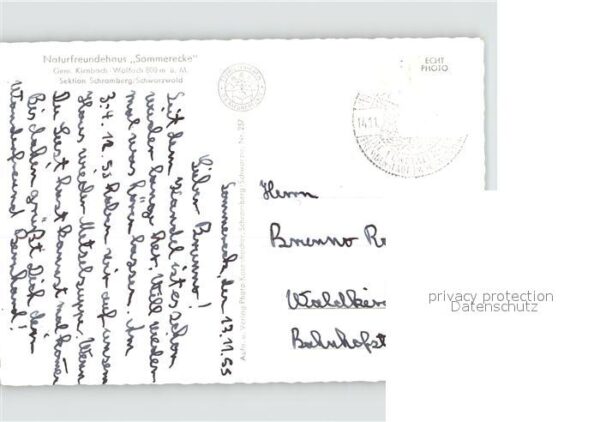 Naturfreundehaus „Sommerecke"
Gem. Kirnbach-Wolfach 800 m ü. M.
Sektion Schramberg/Schwarzwald
ECHT
PHOTO
14.11.
Sommereck, den 13.11.55
Lieber Brunno!
Seit dem Kandel ist es schon
wieder lange her. Will wieder
mal was hören lassen. Am
3.-4.12.55 haben wir auf unserm
Haus wieder Metzelsuppe. Wenn
Du Lust hast kannst mal kommen
Bis dahin grüßt Dich dein
Wanderfreund Bernhard!
Nr. 257
Aufn. u. Verlag Photo Schramberg/Schwarzw.
Herrn
Brunno
Waldkir
Bahnhofst
privacy protection
Datenschutz